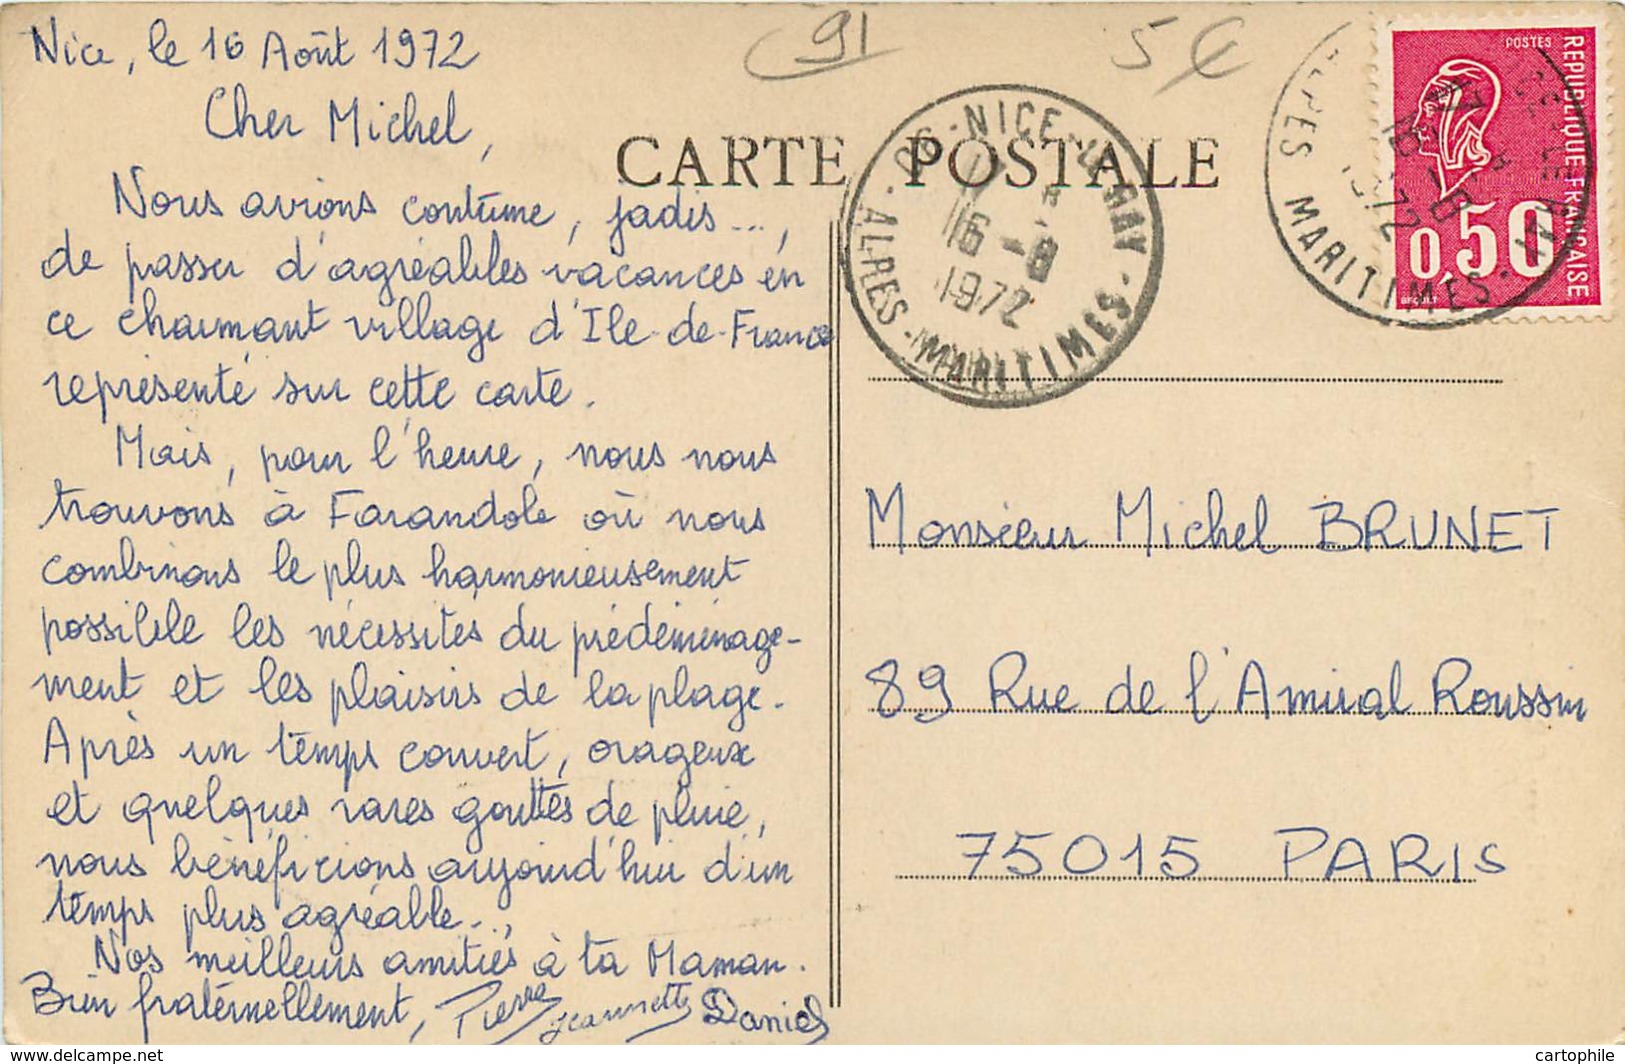 Nice, le 16 Août 1972
Cher Michel,
Nous avions coutume, jadis...,
de passer d'agréables vacances en
ce charmant village d'Ile-de-France
représenté sur cette carte.
Mais, pour l'heure, nous nous
trouvons à Farandole où nous
combinons le plus harmonieusement
possible les nécessités du prédéménage-
ment et les plaisirs de la plage.
Après un temps couvert, orageux
et quelques rares gouttes de pluie,
nous bénéficions aujourd'hui d'un
temps plus agréable...
Nos meilleurs amitiés à ta Maman.
Bien fraternellement, Pierre Jeannette Daniel
91
5 €
CARTE POSTALE
06 - NICE -
16 - 8
1972
ALPES - MARITIMES
POSTES
REPUBLIQUE FRANCAISE
0,50
BEQUET
ALPES MARITIMES
1972
Monsieur Michel BRUNET
89 Rue de l'Amiral Roussin
75015 PARIS
https://www.delcampe.net
cartophile